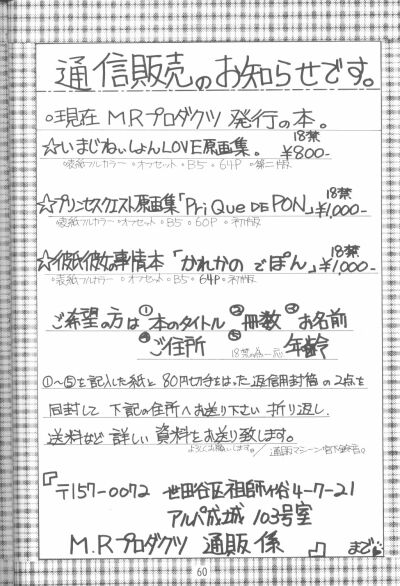 通信販売のお知らせです。
○現在 M.Rプロダクツ 発行の本。
☆いまじねぃしょんLOVE原画集。 18禁 ¥800-
○表紙フルカラー ○オフセット ○B5 ○64P ○第二版
☆プリンセスクエスト原画集「Pri Que DE PON」 18禁 ¥1,000-
○表紙フルカラー ○オフセット ○B5 ○60P ○初版
☆彼氏彼女の事情本「かれかの でぽん」 18禁 ¥1,000-
○表紙フルカラー ○オフセット ○B5 ○64P ○初版
ご希望の方は ①本のタイトル ②冊数 ③お名前
④ご住所 ⑤年齢
18禁の為一応
①~⑤を記入した紙と 80円切手をはった返信用封筒の2点を
同封して 下記の住所へお送り下さい 折り返し
送料など 詳しい 資料をお送り致します。
よろしくお願いします。/通販マシーン
〒157-0072 世田谷区祖師谷4-7-21
アルパ成城 103号室
M.Rプロダクツ 通販 係 まで
60